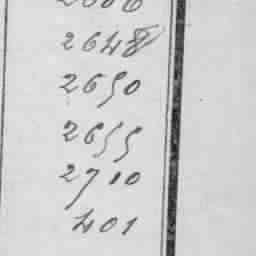 2648
2650
2655
2710
401